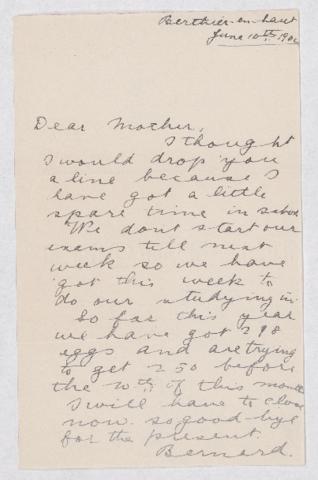 Berthier-en-haut
June 10th 190
Dear Mother,
I thought
I would drop you
a line because I
have got a little
spare time in school
We dont start our
exams till next
week so we have
got this week to
do our studying in
So far this year
we have got 298
eggs and are trying
to get 250 before
the of this month
I will have to close
now. so good-bye
for the present.
Bernard.